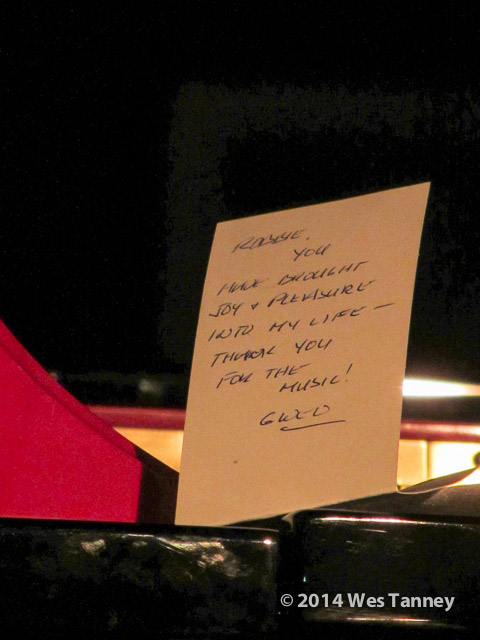 ROBBIE,
YOU
HAVE BROUGHT
JOY & PLEASURE
INTO MY LIFE —
THANK YOU
FOR THE
MUSIC!
GWEN
© 2014 Wes Tanney